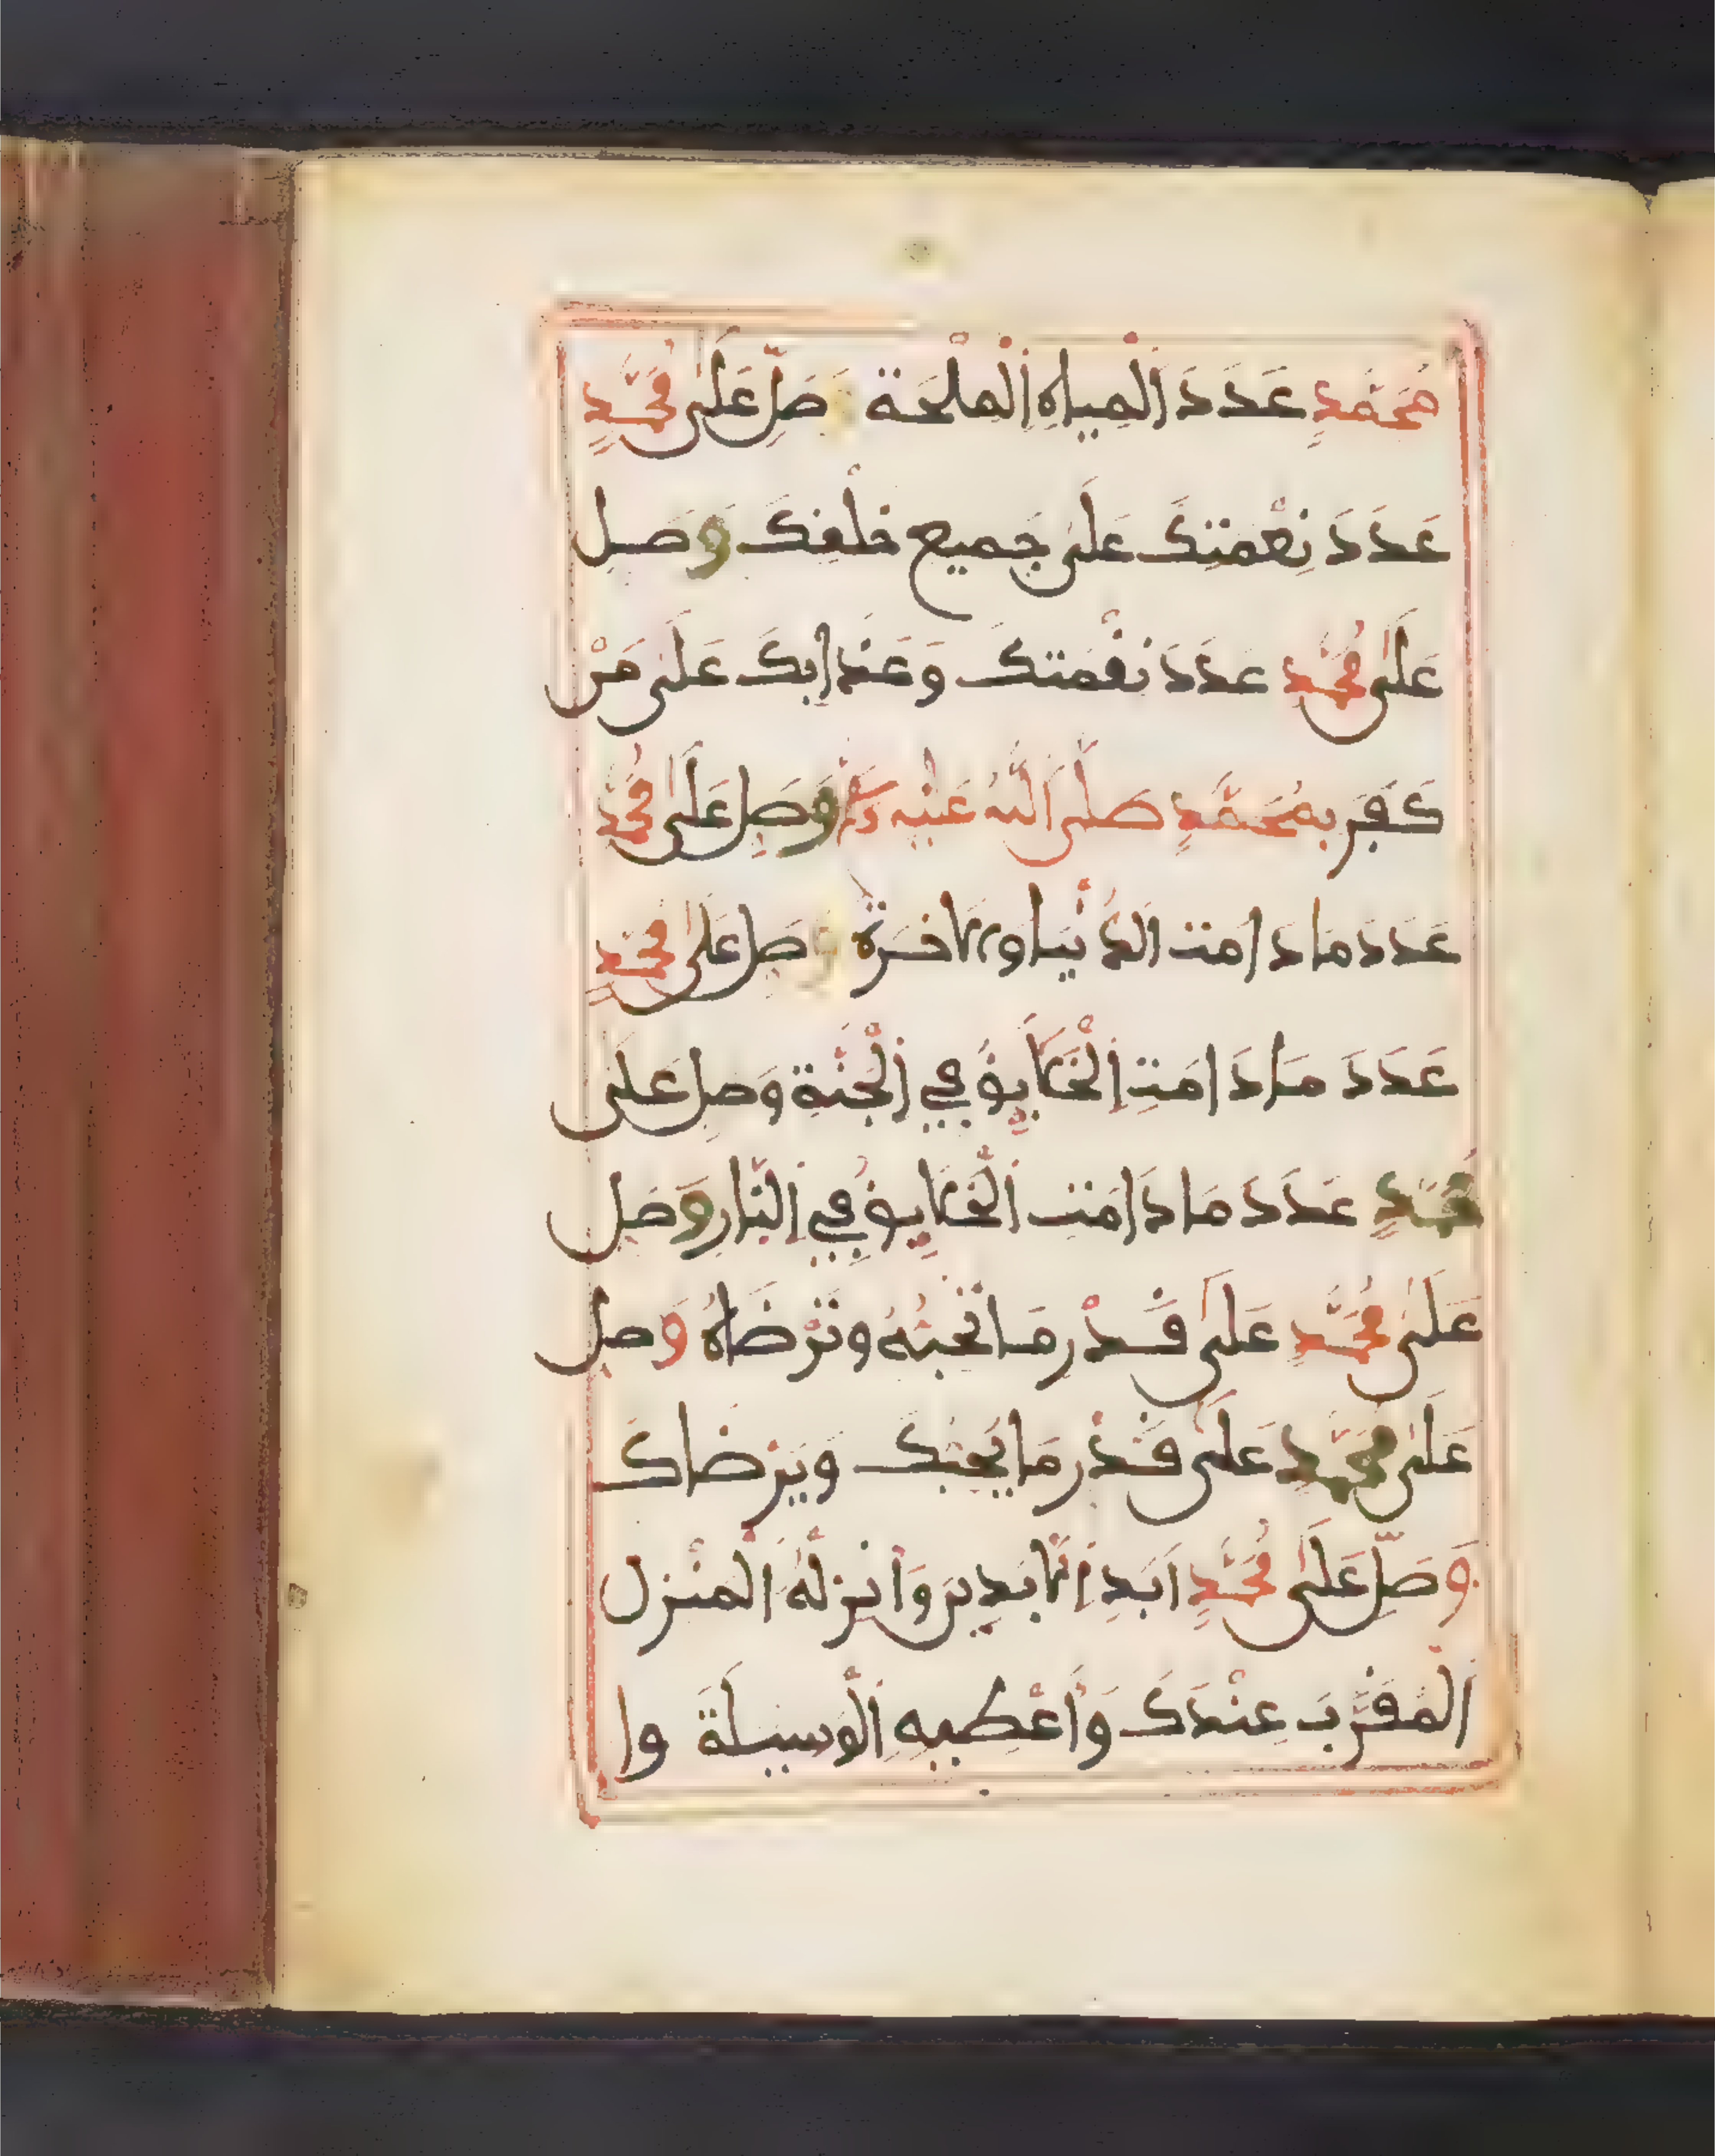 مُحَمَّدٍ عَدَدَ الْمِيَاهِ الْمِلْحَةِ وَصَلِّ عَلَى مُحَمَّدٍ
عَدَدَ نِعْمَتِكَ عَلَى جَمِيعِ خَلْقِكَ وَصَلِّ
عَلَى مُحَمَّدٍ عَدَدَ نِقْمَتِكَ وَعَذَابِكَ عَلَى مَنْ
كَفَرَ بِمُحَمَّدٍ صَلَّى اللهُ عَلَيْهِ وَسَلَّمَ وَصَلِّ عَلَى مُحَمَّدٍ
عَدَدَ مَا دَامَتِ الدُّنْيَا وَالْآخِرَةُ وَصَلِّ عَلَى مُحَمَّدٍ
عَدَدَ مَا دَامَتِ الْخَلَايِقُ فِي الْجَنَّةِ وَصَلِّ عَلَى
مُحَمَّدٍ عَدَدَ مَا دَامَتِ الْخَلَايِقُ فِي النَّارِ وَصَلِّ
عَلَى مُحَمَّدٍ عَلَى قَدْرِ مَا تُحِبُّهُ وَتَرْضَاهُ وَصَلِّ
عَلَى مُحَمَّدٍ عَلَى قَدْرِ مَا يُحِبُّكَ وَيَرْضَاكَ
وَصَلِّ عَلَى مُحَمَّدٍ أَبَدَ الْآبِدِينَ وَأَنْزِلْهُ الْمُنْزَلَ
الْمُقَرَّبَ عِنْدَكَ وَأَعْطِيهِ الْوَسِيلَةَ وَا